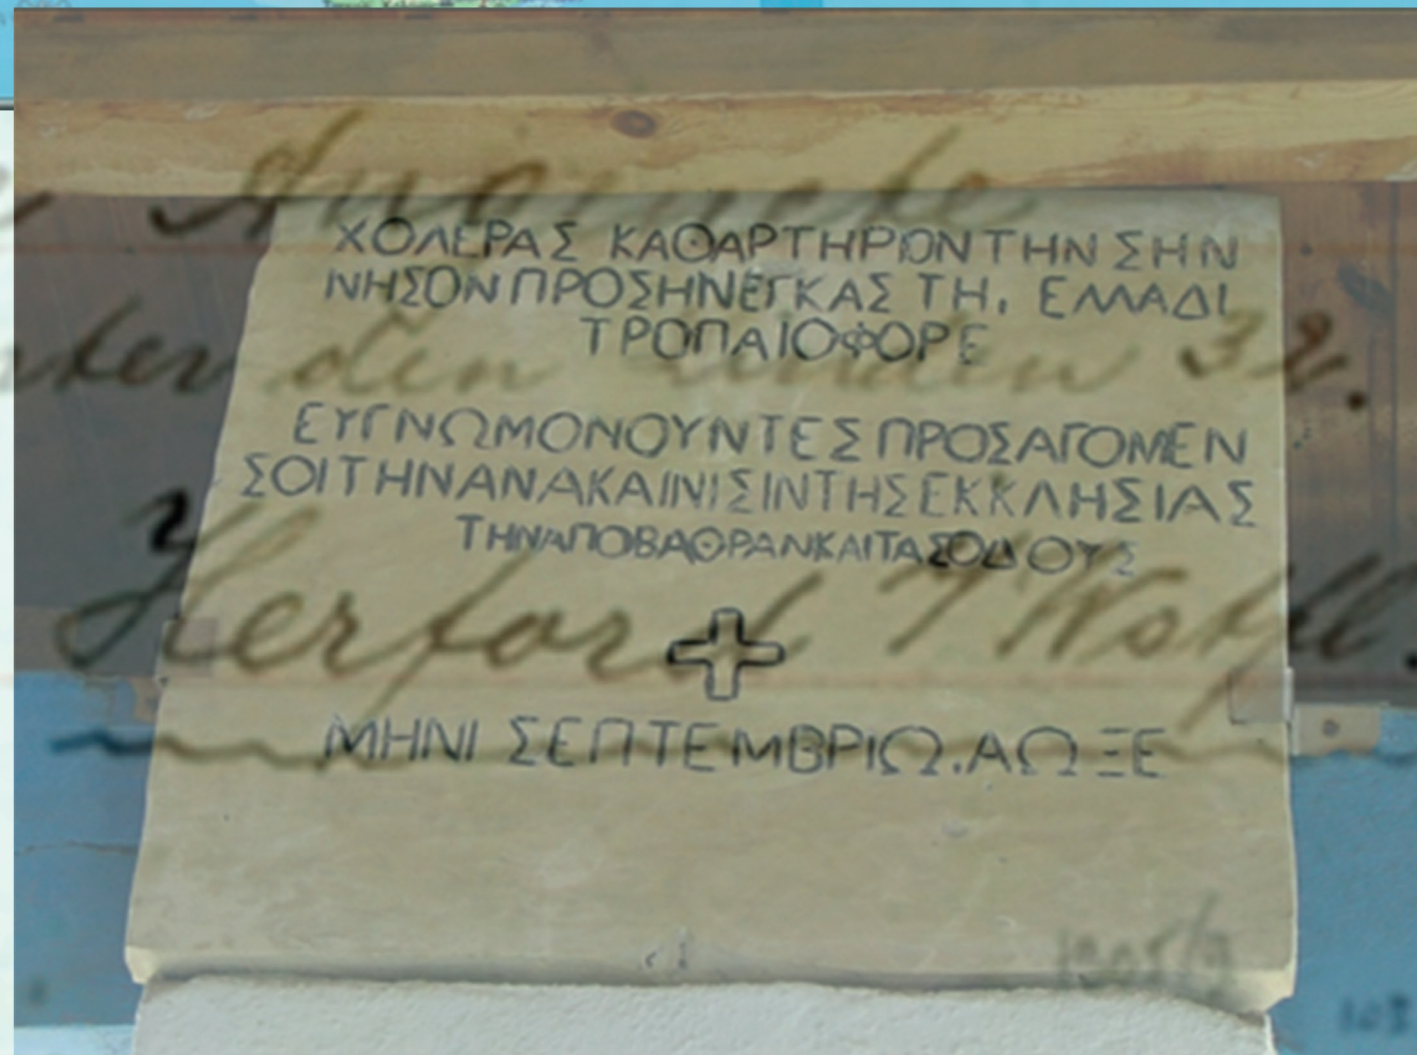 ΧΟΛΕΡΑΣ ΚΑΘΑΡΤΗΡΙΟΝ ΤΗΝ ΣΗΝ
ΝΗΣΟΝ ΠΡΟΣΗΝΕΓΚΑΣ ΤΗ, ΕΛΛΑΔΙ
ΤΡΟΠΑΙΟΦΟΡΕ
ΕΥΓΝΩΜΟΝΟΥΝΤΕΣ ΠΡΟΣΑΓΟΜΕΝ
ΣΟΙ ΤΗΝ ΑΝΑΚΑΙΝΙΣΙΝ ΤΗΣ ΕΚΚΛΗΣΙΑΣ
ΤΗΝ ΑΠΟΒΑΘΡΑΝ ΚΑΙ ΤΑΣ ΟΔΟΥΣ
ΜΗΝΙ ΣΕΠΤΕΜΒΡΙΩ.ΑΩΞΕ
den Linden 32.
Herford